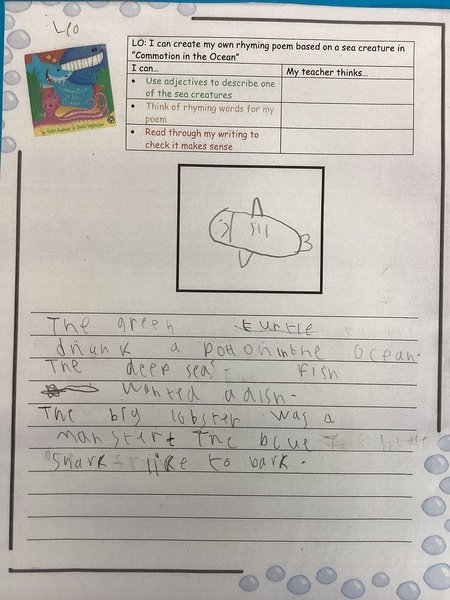 LO: I can create my own rhyming poem based on a sea creature in
"Commotion in the Ocean"
I can...
My teacher thinks...
• Use adjectives to describe one
of the sea creatures
• Think of rhyming words for my
poem
• Read through my writing to
check it makes sense
The green turtle
drink a potion in the ocean.
The deep sea fish
wanted a dish.
The big lobster was a
manster The blue
shark like to bark.